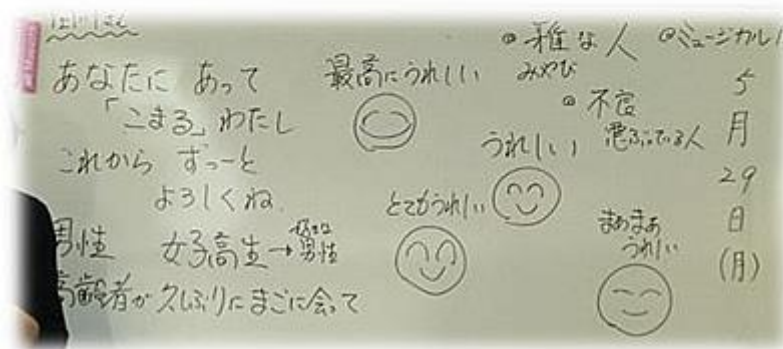 あなたに あって
「こまる」わたし
これから ずーっと
よろしくね
男性 女子高生→好きな男性
高齢者が久しぶりにまごに会って
最高にうれしい
とてもうれしい
うれしい
まあまあ
うれしい
◎雅な人
みやび
◎不良
悪ぶっている人
◎ミュージカル!
5月29日(月)